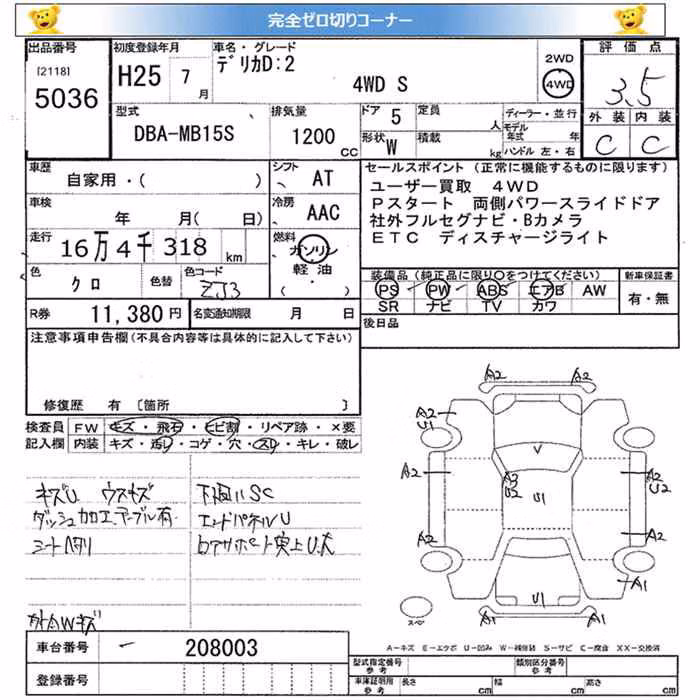 完全ゼロ切りコーナー
出品番号
[2118]
5036
初度登録年月
H25 7
月
車名・グレード
デリカD:2
4WD S
2WD
4WD
評価点
3.5
外装 内装
C C
型式
DBA-MB15S
排気量
1200
CC
ドア 5
定員
人
形状 W
積載
kg
ディーラー・並行
モデル
年式 年
ハンドル 左・右
車歴
自家用・( )
シフト
AT
車検
年 月( 日)
冷房
AAC
走行
16万4千318 km
燃料
ガソリン
軽油
( ・ )
色
クロ
色替
色コード
ZJ3
R券 11,380円
名変通知期限 月 日
セールスポイント (正常に機能するものに限ります)
ユーザー買取 4WD
Pスタート 両側パワースライドドア
社外フルセグナビ・Bカメラ
ETC ディスチャージライト
装備品 (純正品に限り○をつけてください)
新車保証書
PS PW ABS エアB AW
SR ナビ TV カワ
有・無
後日品
注意事項申告欄(不具合内容等は具体的に記入して下さい)
修復歴 有 [箇所 ]
検査員
記入欄
FW キズ・飛石・ヒビ割・リペア跡・×要
内装 キズ・汚レ・コゲ・穴・スレ・キレ・破レ
キズU ウスキズ
ダッシュ加工、テーブル有
シートヘタリ
下廻りSC
エンドパネルU
コアサポート突上U、大
外AWキズ
車台番号 208003
登録番号
A2 A2
A2
U1
V
A2
A3
U2
U1
A2
U2
A2 A2
A1
U1
A1 A1
スペア
A-キズ E-エクボ U-凹み W-補修跡 S-サビ C-腐食 XX-交換済
型式指定番号
参考
類別区分番号
参考
車庫証明用
参考
長さ cm
幅 cm
高さ cm